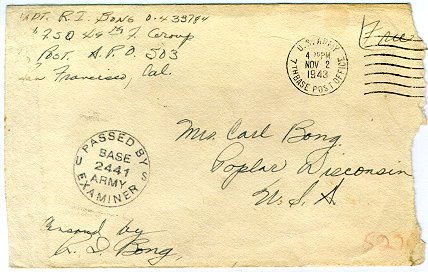 CAPT. R. I. BONG O-433784
$250 49th F. Group
POST. A.P.O. 503
San Francisco, Cal.
U.S. ARMY
4 PM
NOV 2
1943
7TH BASE POST OFFICE
Free
PASSED BY
BASE
2441
ARMY
EXAMINER
U S
Mrs. Carl Bong
Poplar Wisconsin
U. S. A
Censored by
R. I. Bong,